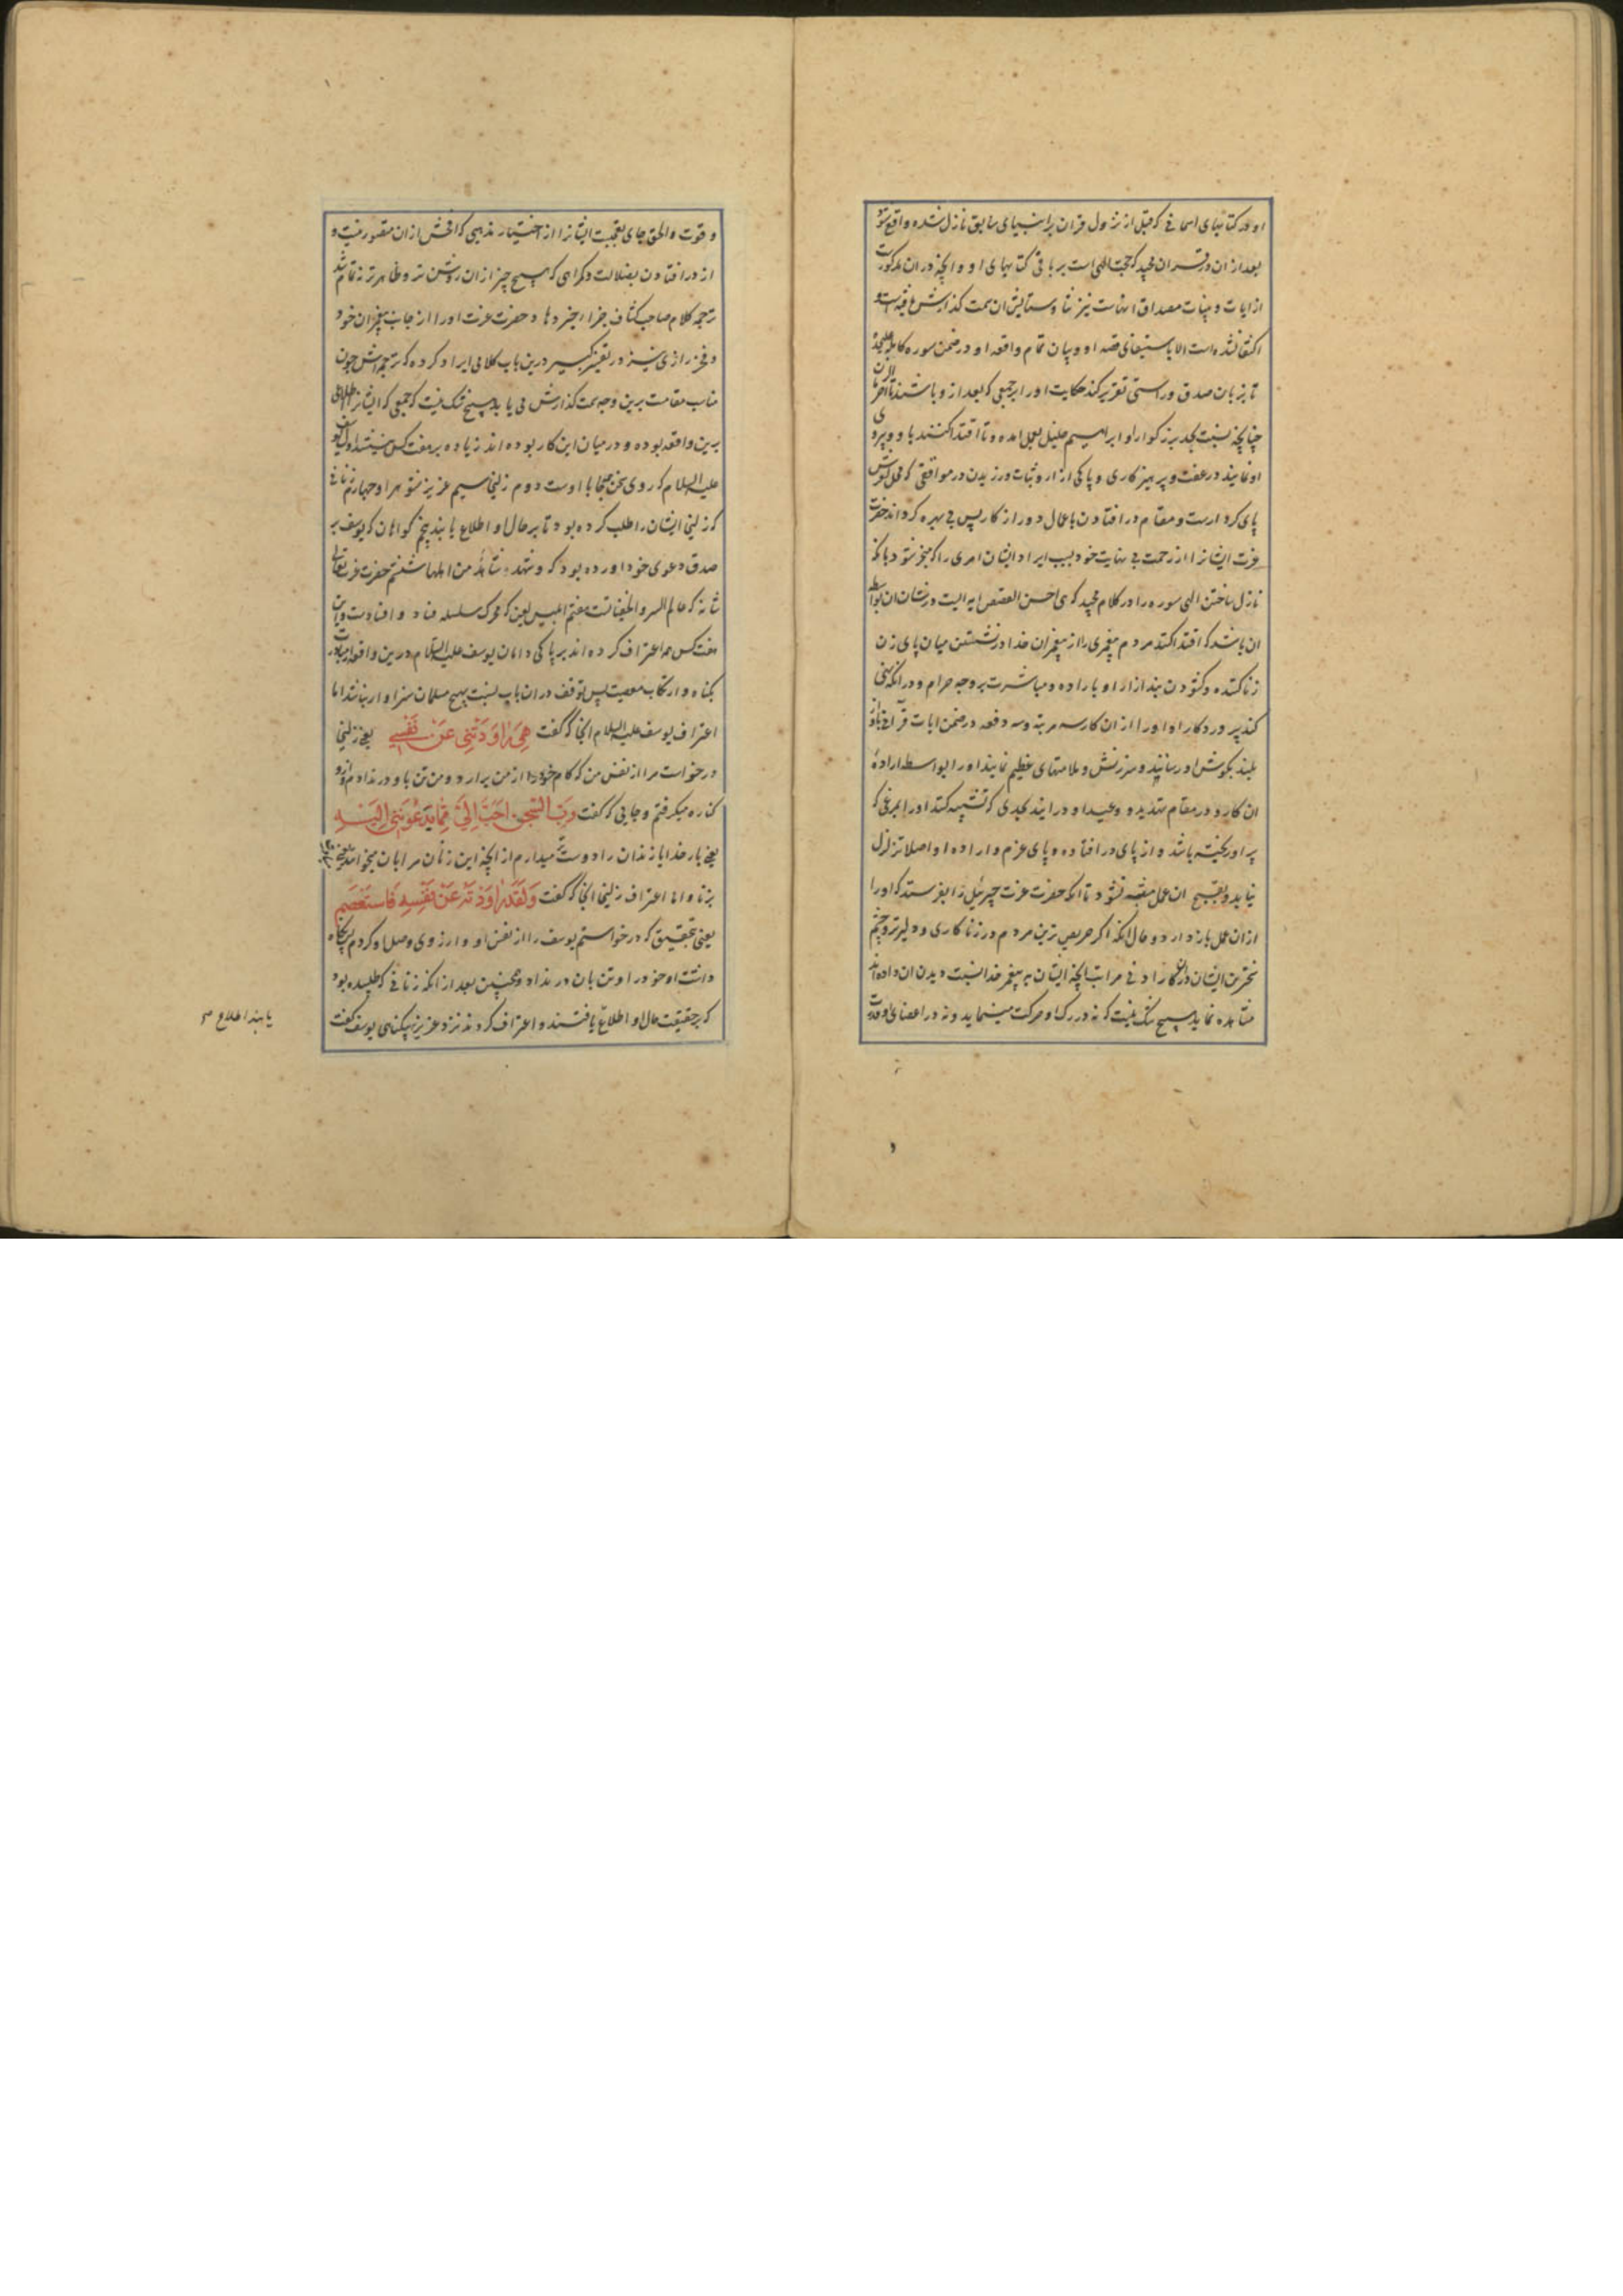 او در کتابهای اسمانی که قبل از نزول قران بر انبیای سابق نازل شده واقع شود
بعد از ان در قران مجید که حجت الهی است بر باقی کتابهای او و انچه در ان مذکورست
از ایات و بینات مصداق انهاست نیز ثنا و ستایش ان سمت گذارش یافته است و
اکتفا نشده است الا باستیفای قصه او و بیان تمام واقعه او در ضمن سوره کامله علیحده
تا بزبان صدق و راستی تقریر کند حکایت او را بر جمعی که بعد از و باشند تا اخر الزمان
چنانچه نسبت بجد بزرگوار او ابراهیم خلیل بعمل امده و تا اقتدا کنند باو و پیروی
او نمایند در عفت و پرهیزکاری و پاکی ازار و ثبات ورزیدن در مواقفی که محل لغزش
پای کردارست و مقام در افتادن باعمال دور از کار پس بی بهره کرداند حضرت
عزت ایشانرا از رحمت بی نهایت خود بسبب ایراد ایشان امری را که منجر شود بانکه
نازل ساختن الهی سوره را در کلام مجید که احسن القصص ایه ایست در شان ان بواسطه
ان باشد که اقتدا کند مردم پیغمبری را از پیغمبران خدا در نشستن میان پای زن
زناکننده و کشودن بند ازار او باراده مباشرت بر وجه حرام و در انکه نهی
کند پروردکار او او را از ان کار سه مرتبه و سه دفعه در ضمن ایات قرآنی باواز
بلند بگوش او رسانند و سرزنش و ملامتهای عظیم نمایند او را بواسطه اراده
ان کار و در مقام تهدید و وعید او در ایند بحدی که تشبیه کنند او را بمرغی که
پر او ریخته باشد و از پای در افتاده و پای عزم و اراده او اصلا تزلزل
نیابد و بقبیح ان عمل متنبه نشود تا انکه حضرت عزت جبرئیل را بفرستد که او را
از ان عمل باز دارد و حال انکه اکر حریص ترین مردم در زناکاری و دلیرتر و چشم
سخترین ایشان درین کار ادنی مراتب انچه ایشان به پیغمبر خدا نسبت دیدن ان داده اند
مشاهده نماید هیچ شک نیست که نه در رک او حرکت مینماید و نه در اعضای او قدرت
و قوت و الحق جای تعجبست ایشانرا از اختیار مذهبی که افحش از ان مقصور نیست و
از در افتادن بضلالت و گمراهی که هیچ چیز از ان روشن تر و ظاهرتر نه تمام شد
ترجمه کلام صاحب کشاف جزاه خیرها و حضرت عزت او را از جانب پیغمبران خود
و فخر رازی نیز در تفسیر کبیر درین باب کلامی ایراد کرده که ترجمه اش چون
مناسب مقامست برین وجه سمت کذارش می یابد هیچ شک نیست که جمعی که ایشانرا اطلاعی
برین واقعه بوده و در میان این کار بوده اند زیاده بر هفت کس نیستند اول یوسف
علیه السلام که روی سخن اینجا با اوست دوم زلیخا سیم عزیز شوهر او چهارم زنانی
که زلیخا ایشان را طلب کرده بود تا بر حال او اطلاع یابند پنجم کواهان که یوسف بر
صدق دعوی خود اورده بود که و شهد شاهد من اهلها ششم حضرت عزت تعالی
شانه که عالم السر و الخفیاتست هفتم ابلیس لعین که محرک سلسله فساد و افسادست و این
هفت کس همه اعتراف کرده اند بر پاکی دامان یوسف علیه السلام درین واقعه از مبادرت
بگناه و ارتکاب معصیت پس توقف دران باب نسبت بهیچ مسلمان سزاوار نباشد اما
اعتراف یوسف علیه السلام انجا که گفت هِیَ رَاوَدَتْنِی عَنْ نَفْسِی یعنی زلیخا
درخواست مرا از نفس من که کام خود را از من برارد و من تن باو در ندادم و ازو
کناره میگرفتم و جایی که گفت رَبِّ السِّجْنُ اَحَبُّ اِلَیَّ مِمَّا یَدْعُونَنِی اِلَیْهِ
یعنی بار خدایا زندان را دوست میدارم از انچه این زنان مرا بان میخوانند یعنی
بزنا و اما اعتراف زلیخا انجا که گفت وَلَقَدْ رَاوَدْتُهُ عَنْ نَفْسِهِ فَاسْتَعْصَمَ
یعنی بتحقیق که درخواستم یوسف را از نفس او و ارزوی وصل او کردم پس نگاه
داشت او خود را و تن بان در نداد و همچنین بعد از انکه زنانی که طلبیده بود
که بر حقیقت حال او اطلاع یافتند و اعتراف کردند نزد عزیز به بیگناهی یوسف گفت
یابند اطلاع م